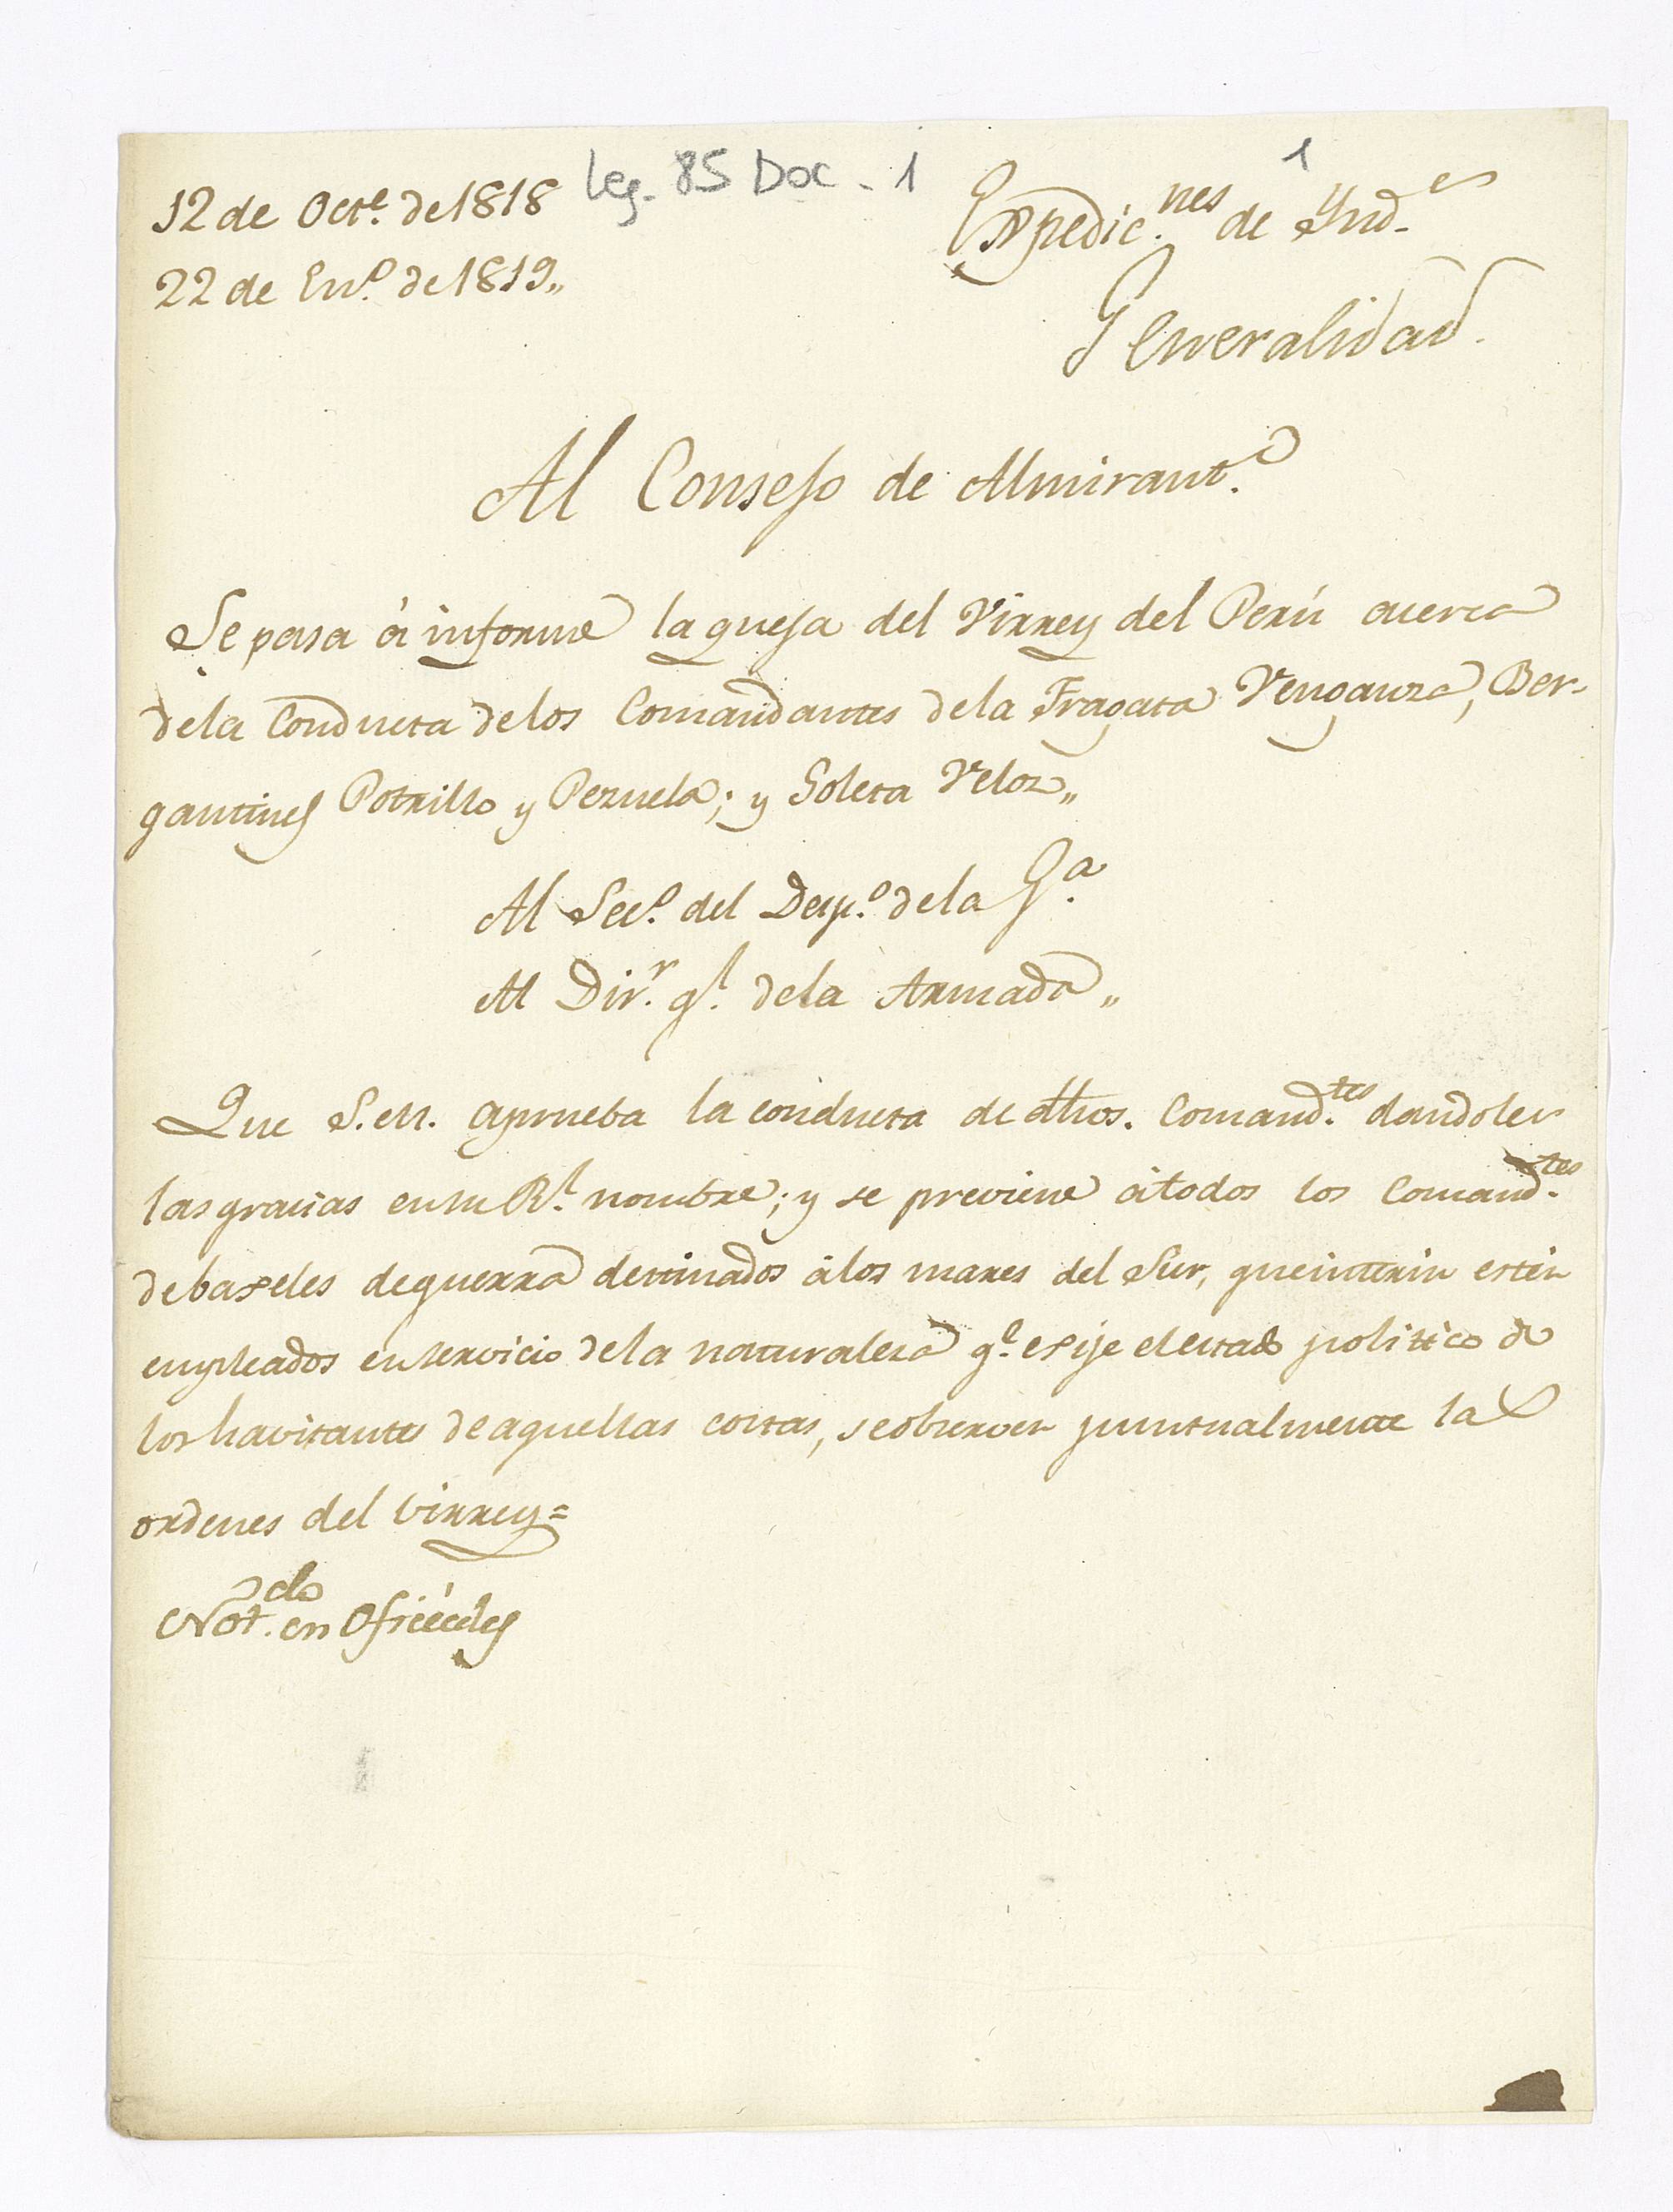 12 de Oct.e de 1818
Leg. 85 Doc - 1
1
22 de En.o de 1819„
Expedic.nes de Ynd.es
Generalidad.
Al Consejo de Almirant.o
Se pasa á informe la queja del Virrey del Perú acerca
de la Conducta de los Comandantes de la Fragata Venganza, Ber-
gantines Potrillo y Pezuela; y Goleta Veloz„
Al Sec.o del Desp.o de la G.a
Al Dir.r g.l de la Armada„
Que S.M. aprueba la conducta de dhos. Comand.tes dandoles
las gracias en su R.l nombre; y se previene á todos los Comand.tes
de baxeles de guerra destinados á los mares del Sur, que interin estén
empleados en servicio de la naturaleza q.e exije el estado politico de
los havitantes de aquellas costas, se observen puntualmente las
ordenes del Virrey=
Not.do en Ofici.les